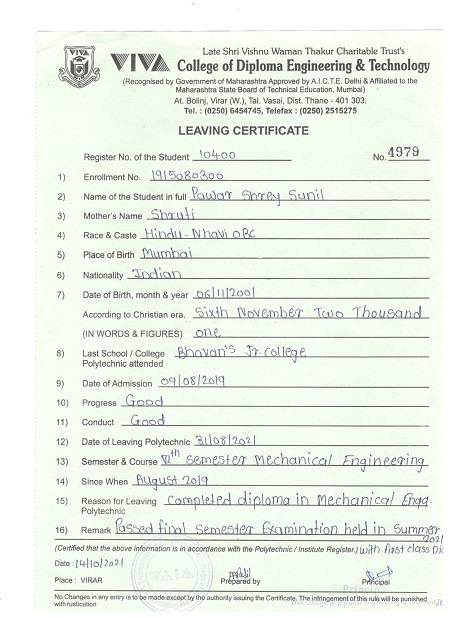 Late Shri Vishnu Waman Thakur Charitable Trust's
VIVA College of Diploma Engineering & Technology
(Recognised by Government of Maharashtra Approved by A.I.C.T.E. Delhi & Affiliated to the
Maharashtra State Board of Technical Education, Mumbai)
At. Bolinj, Virar (W.), Tal. Vasai, Dist. Thane - 401 303.
Tel. : (0250) 6454745, Telefax : (0250) 2515275
LEAVING CERTIFICATE
Register No. of the Student 10400 No. 4979
1) Enrollment No. 1915080300
2) Name of the Student in full Pawar Shrey Sunil
3) Mother's Name Shruti
4) Race & Caste Hindu-Nhavi OBC
5) Place of Birth Mumbai
6) Nationality Indian
7) Date of Birth, month & year 06/11/2001
According to Christian era. Sixth November Two Thousand
(IN WORDS & FIGURES) one
8) Last School / College Bhavan's Jr. college
Polytechnic attended
9) Date of Admission 09/08/2019
10) Progress Good
11) Conduct Good
12) Date of Leaving Polytechnic 31/08/2021
13) Semester & Course VIth Semester Mechanical Engineering
14) Since When August 2019
15) Reason for Leaving completed diploma in Mechanical Engg.
Polytechnic
16) Remark Passed final Semester Examination held in Summer
2021
(Certified that the above information is in accordance with the Polytechnic / Institute Register.) with first class Di
Date : 14/10/2021
Place : VIRAR Prepared by Principal
No Changes in any entry is to be made except by the authority issuing the Certificate. The infringement of this rule will be punished
with rustication